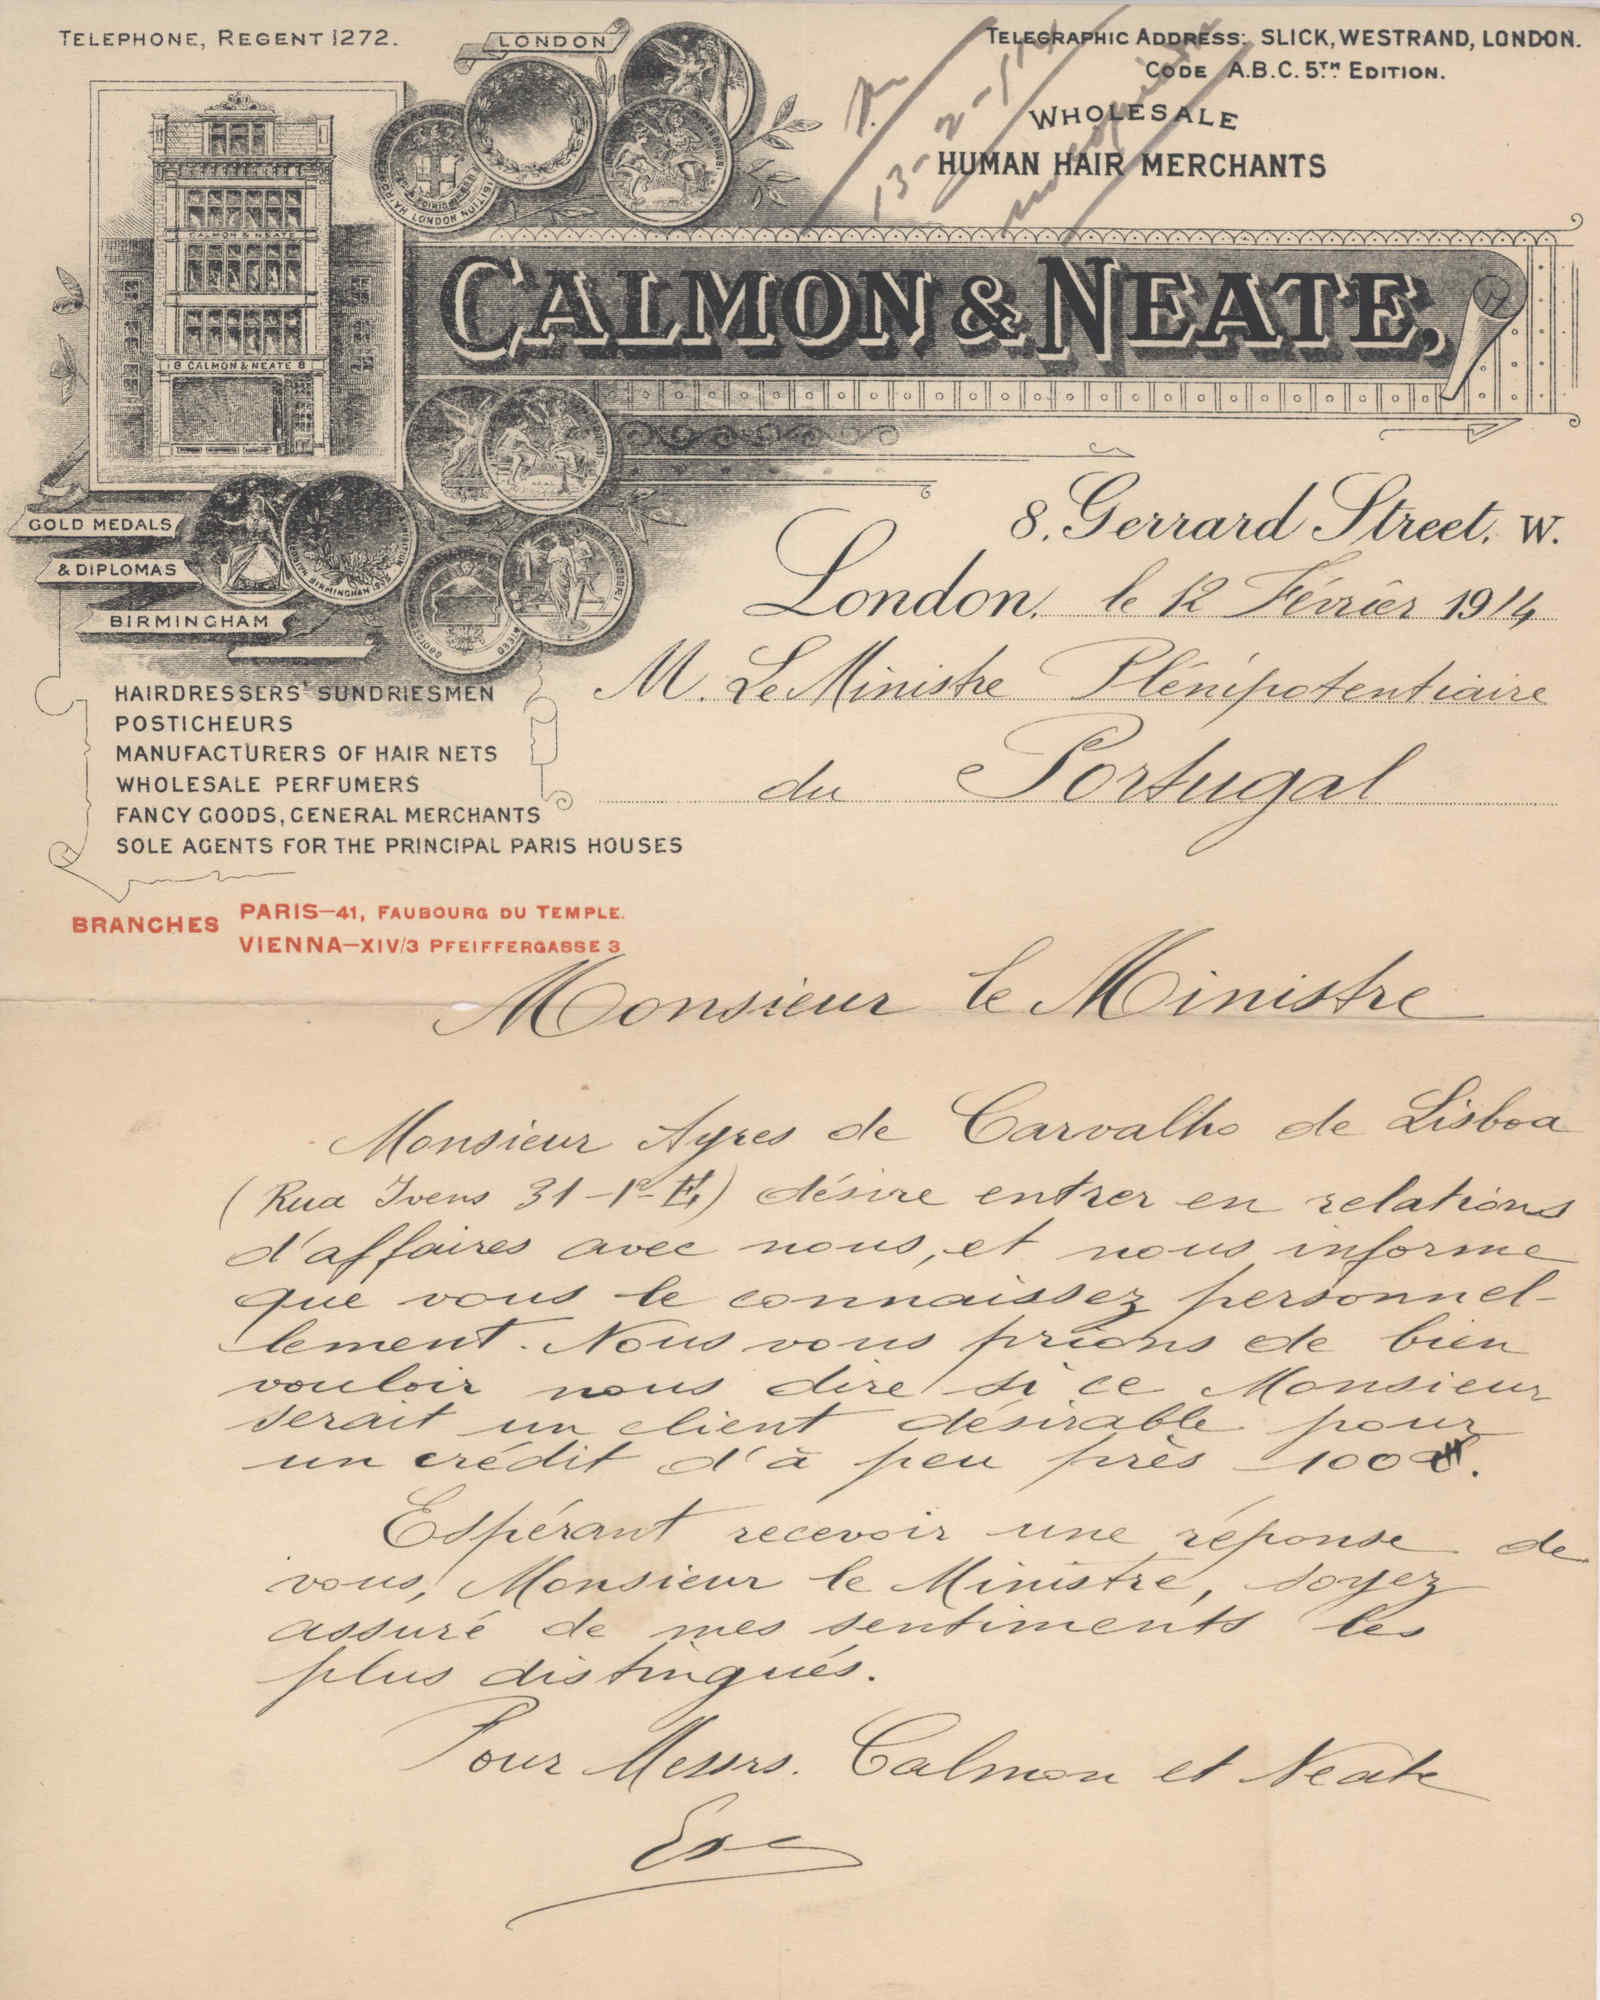 TELEPHONE, REGENT 1272.
LONDON
TELEGRAPHIC ADDRESS: SLICK, WESTRAND, LONDON.
CODE A.B.C. 5TH EDITION.
13-2-
WHOLESALE
HUMAN HAIR MERCHANTS
CALMON & NEATE,
CALMON & NEATE
8 CALMON & NEATE 8
GOLD MEDALS
& DIPLOMAS
BIRMINGHAM
8, Gerrard Street, W.
London, le 12 Févriér 1914
M. Le Ministre Plénipotentiaire
du Portugal
HAIRDRESSERS' SUNDRIESMEN
POSTICHEURS
MANUFACTURERS OF HAIR NETS
WHOLESALE PERFUMERS
FANCY GOODS, GENERAL MERCHANTS
SOLE AGENTS FOR THE PRINCIPAL PARIS HOUSES
BRANCHES PARIS—41, FAUBOURG DU TEMPLE.
VIENNA—XIV/3 PFEIFFERGASSE 3
Monsieur le Ministre
Monsieur Ayres de Carvalho de Lisboa
(Rua Ivens 31-1º-E,) désire entrer en relations
d'affaires avec nous, et nous informe
que vous le connaissez personnel-
lement. Nous vous prions de bien
vouloir nous dire si ce Monsieur
serait un client désirable pour
un crédit d'à peu près 100
Espérant recevoir une réponse de
vous, Monsieur le Ministre, soyez
assuré de mes sentiments les
plus distingués.
Pour Messrs. Calmon et Neate